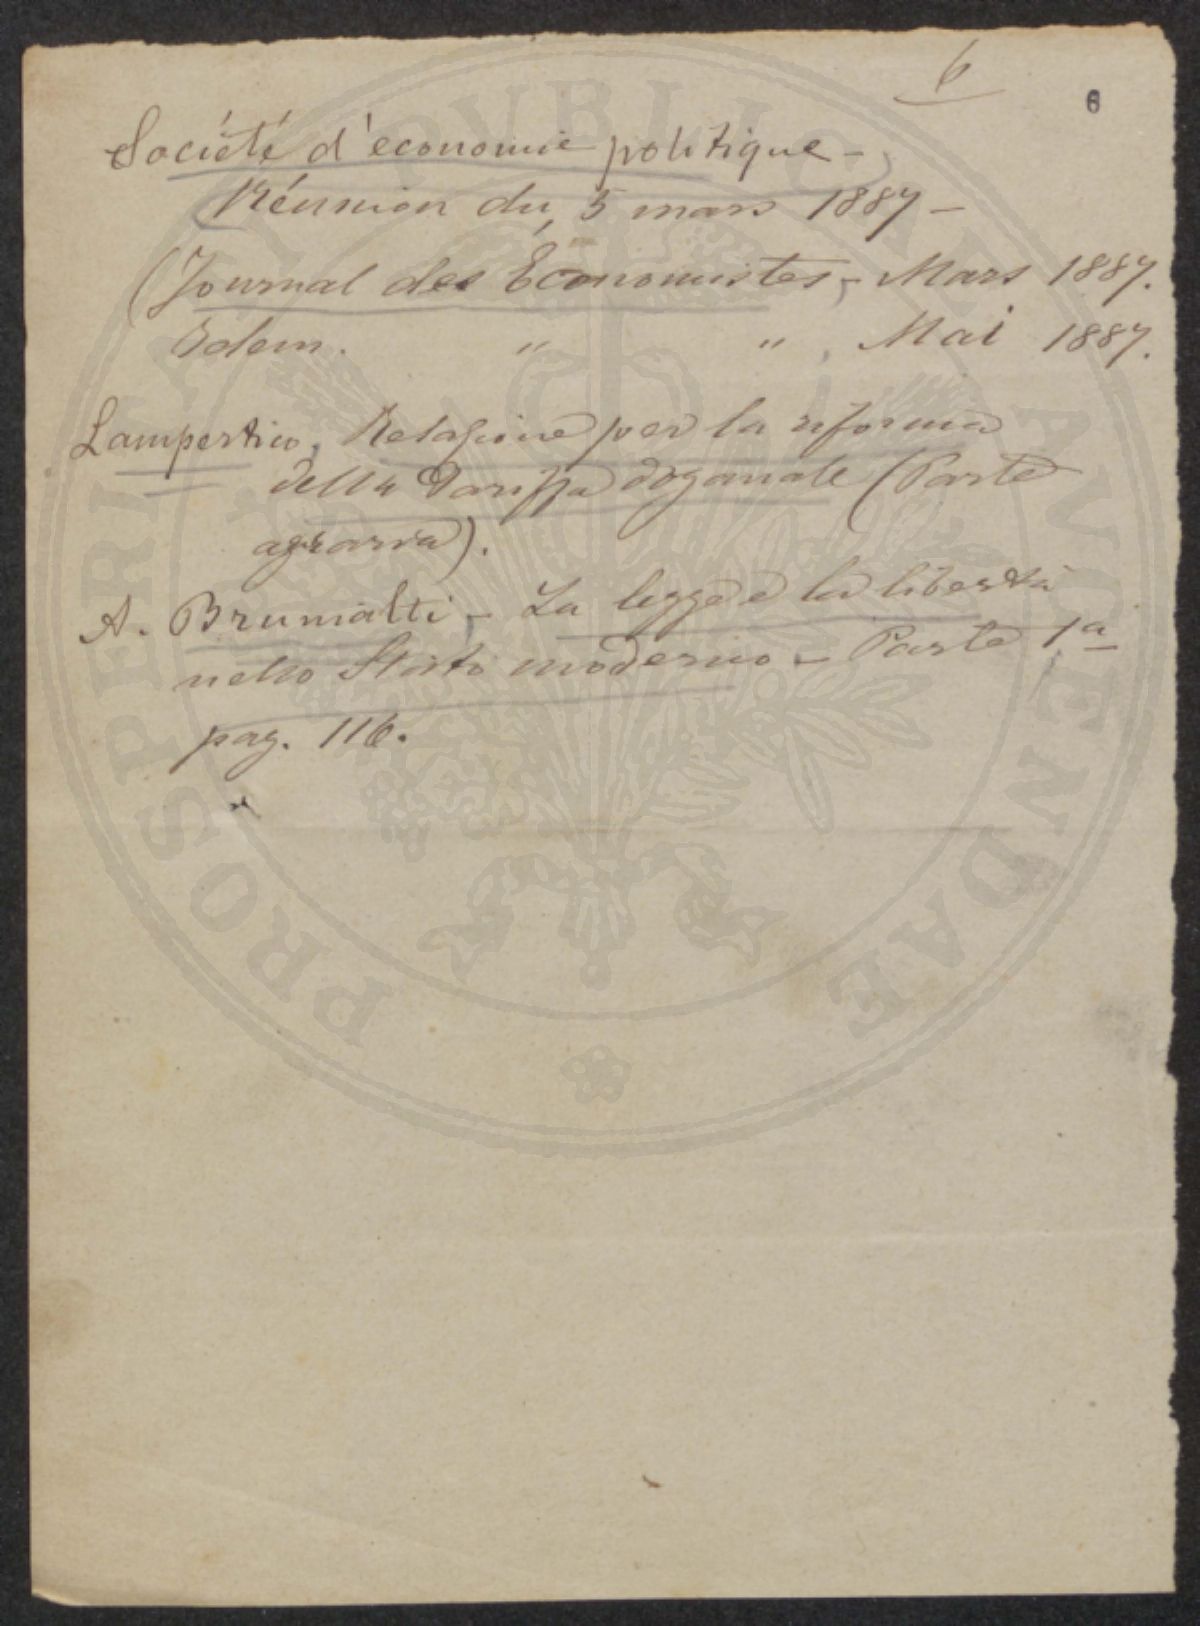 6
6
Société d'économie politique -
Réunion du 5 mars 1887 -
(Journal des Économistes, - Mars 1887.
Idem. " " , Mai 1887.
Lampertico, Relazione per la riforma
della Tariffa doganale (Parte
agraria).
A. Brunialti, - La legge e la libertà
nello Stato moderno - Parte 1a
pag. 116.
PROSPERITATI PVBLICAE AVGENDAE